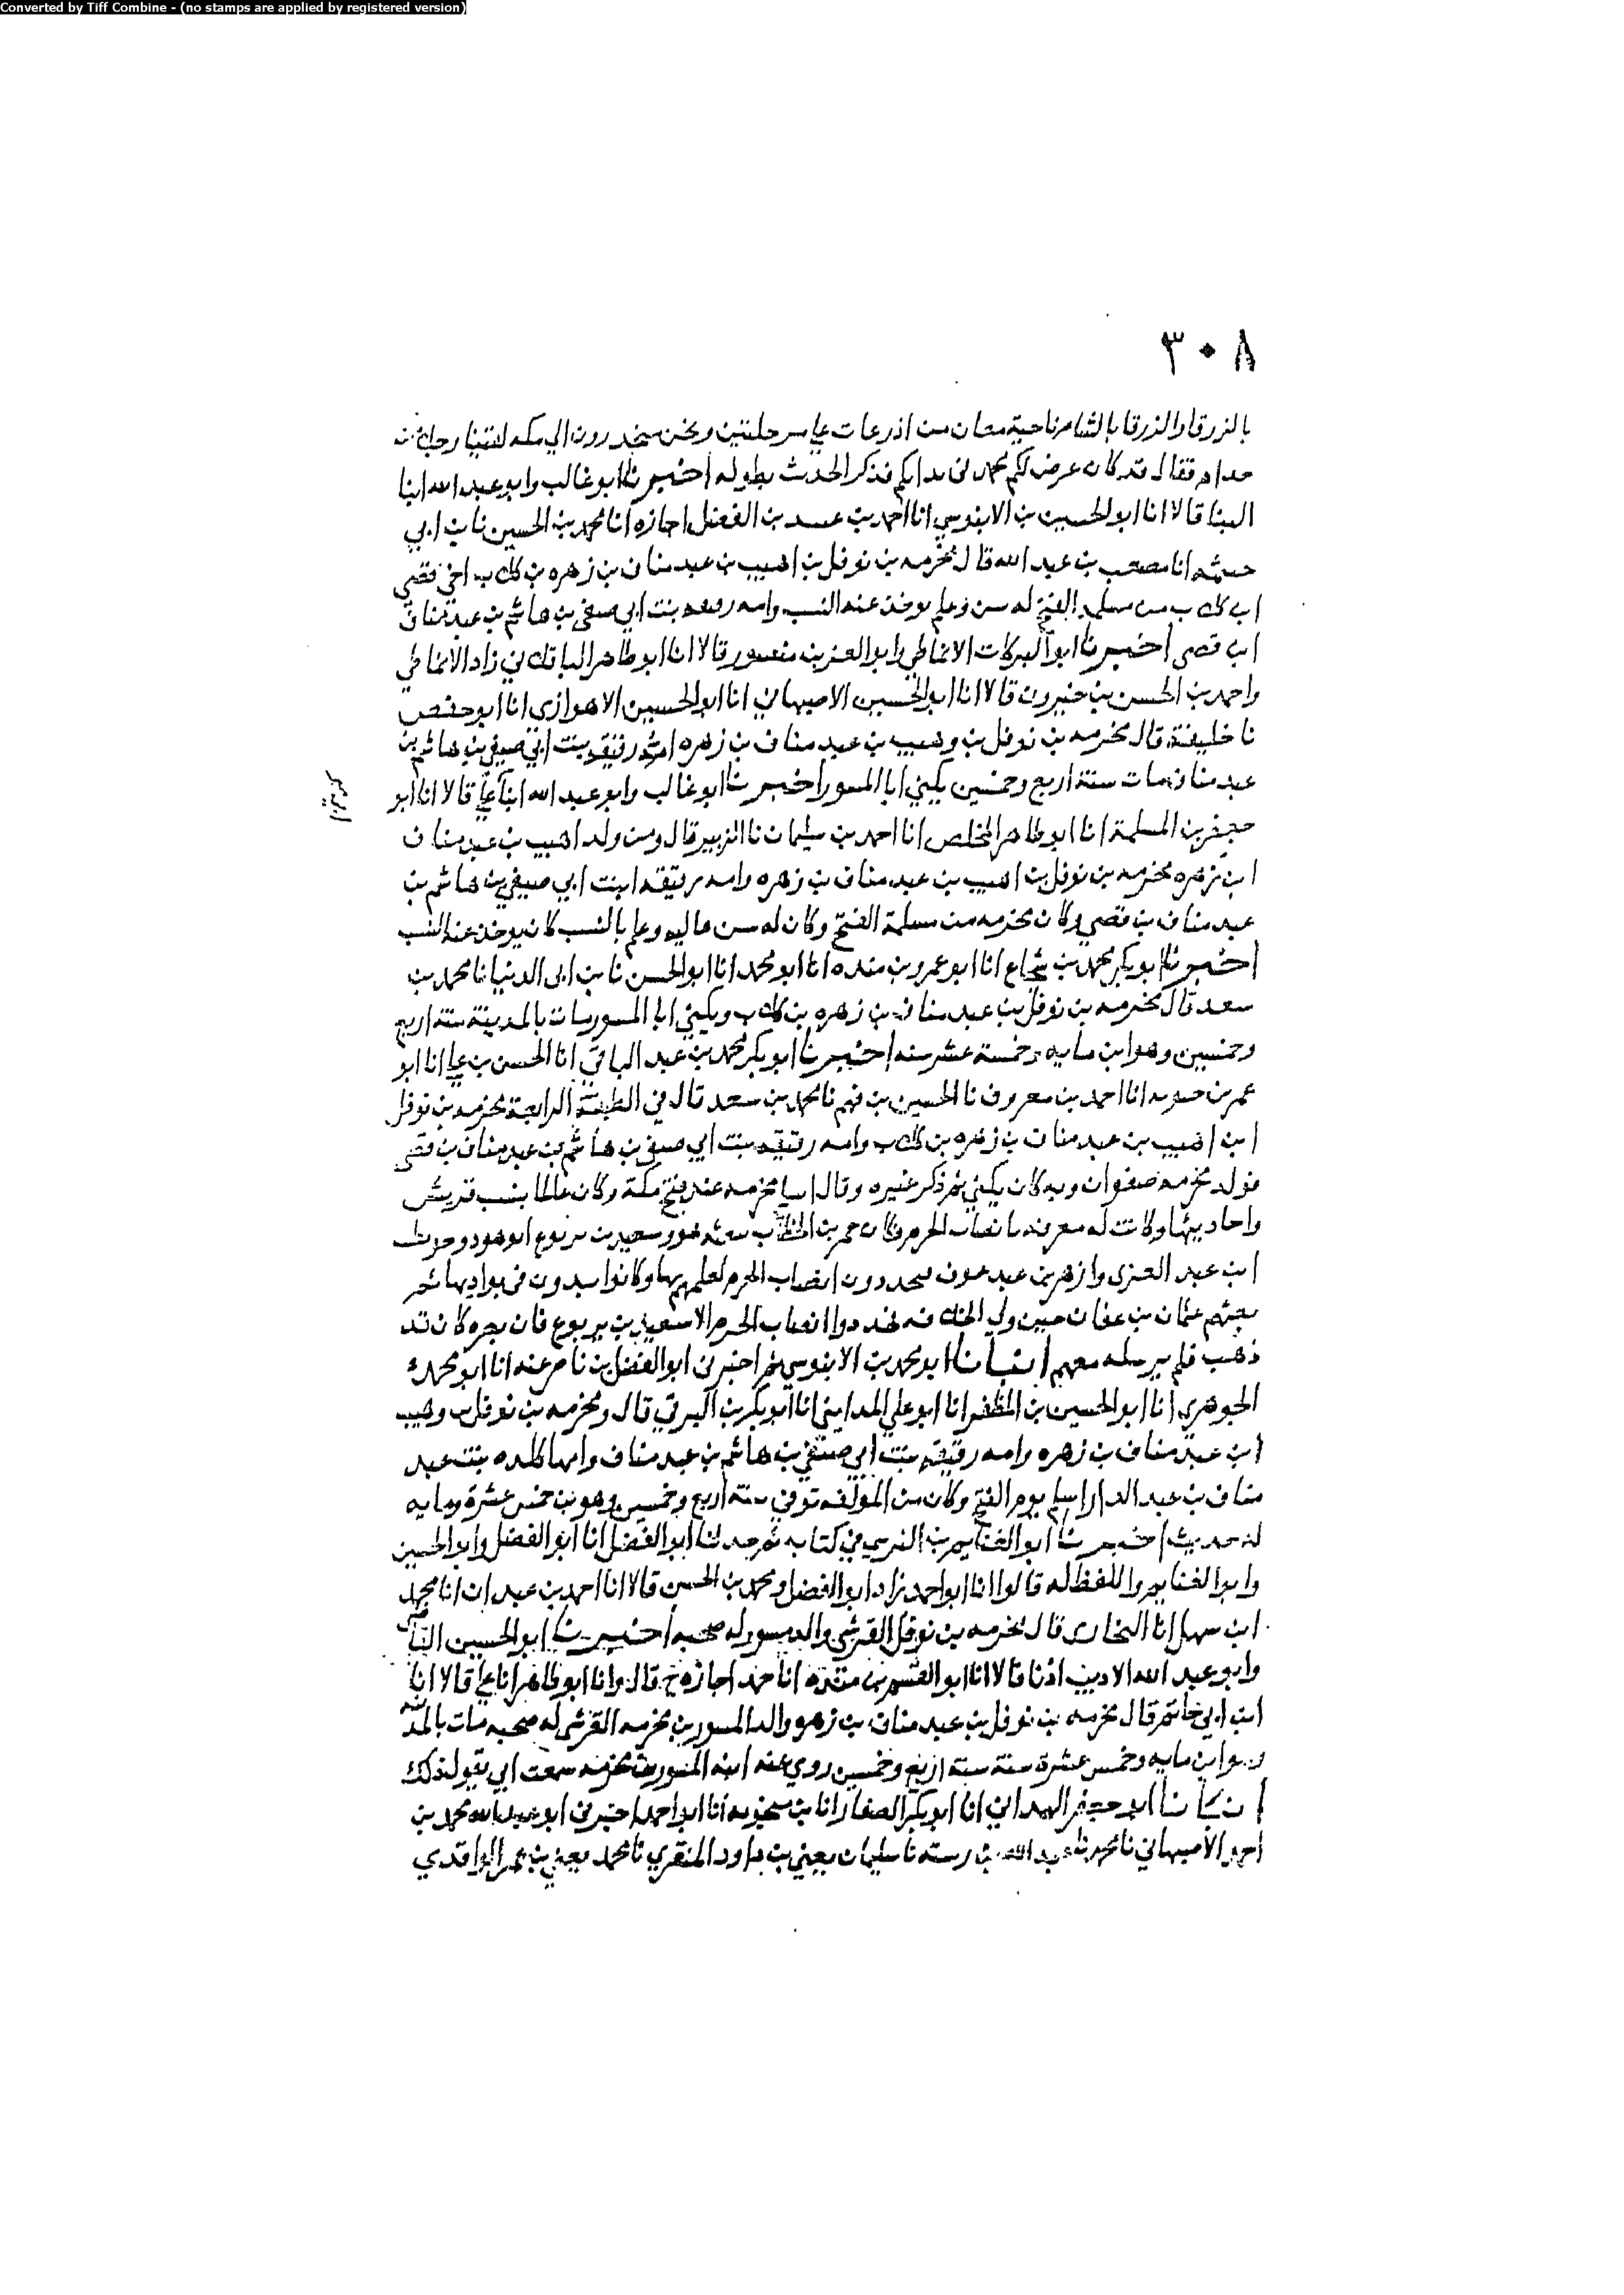 Converted by Tiff Combine - (no stamps are applied by registered version)
٣٠٨
بالزرقا والزرقا بالشام ناحية معان من اذرعات على مرحلتين ونحن منحدرون الى مكه لقينا رجل من
فقال قد كان عرض لكم محمد فى بدايكم فذكر الحديث بطوله اخبرنا ابو غالب وابو عبد الله ابنا
البنا قالا انا ابو الحسين بن الابنوسي انا احمد بن عبيد بن الفضل اجازه انا محمد بن الحسين نا بن ابي
خيثمه انا مصعب بن عبد الله قال مخرمه بن نوفل بن اهيب بن عبد مناف بن زهره بن كلاب اخي قصي
ابن كلاب من مسلمه الفتح له سن وعلم يوخذ عنه النسب وامه رقيقه بنت ابي صيفي بن هاشم بن عبد مناف
ابن قصي اخبرنا ابو البركات الانماطي وابو العز بن منصور قالا انا ابو طاهر الباقلاني زاد الانماطي
واحمد بن الحسن بن خيرون قالا انا ابو الحسين الاصبهاني انا ابو الحسين الاهوازى انا ابو حفص
نا خليفة قال مخرمه بن نوفل بن وهيب بن عبد مناف بن زهره امه رقيقه بنت ابي صيفي بن هاشم بن
عبد مناف مات سنة اربع وخمسين يكني ابا المسور اخبرنا ابو غالب وابو عبد الله ابنا علي قالا انا ابو
جعفر بن المسلمة انا ابو طاهر المخلص انا احمد بن سليمان نا الزبير قال ومن ولد اهيب بن عبد مناف
ابن زهره مخرمه بن نوفل بن اهيب بن عبد مناف بن زهره وامه رقيقه ابنت ابي صيفي بن هاشم بن
عبد مناف بن قصي وكان مخرمه من مسلمة الفتح وكان له سن عاليه وعلم بالنسب كان يوخذ عنه النسب
اخبرنا ابو بكر محمد بن شجاع انا ابو عمرو بن منده انا ابو محمد انا ابو الحسن نا بن ابى الدنيا نا محمد بن
سعد قال مخرمه بن نوفل بن عبد مناف بن زهره بن كلاب ويكني ابا المسور مات بالمدينة سنة اربع
وخمسين وهو ابن مايه وخمسة عشر سنه اخبرنا ابو بكر محمد بن عبد الباقي انا الحسن بن علي انا ابو
عمر بن حيويه انا احمد بن معروف نا الحسين بن فهم نا محمد بن سعد قال في الطبقة الرابعة مخرمه بن نوفل
ابن اهيب بن عبد مناف بن زهره بن كلاب وامه رقيقه بنت ابي صيفي بن هاشم بن عبد مناف بن قصي
فولد مخرمه صفوان وبه كان يكني ثم ذكر غيره وقال اسلم مخرمه عند فتح مكة وكان عالما بنسب قريش
واحاديثها وكانت له معرفه بانصاب الحرم فكان عمر بن الخطاب يبعثه هو وسعيد بن يربوع ابو هود وحويطب
ابن عبد العزى وازهر بن عبد عوف يجددون انصاب الحرم لعلمهم بها وكانوا يبدون فى بواديها ثم
بعثهم عثمان بن عفان حين ولي الخلافه فجددوا انصاب الحرم الا سعيد بن يربوع فان بصره كان قد
ذهب فلم يرسله معهم انبانا ابو محمد بن الابنوسي ثم اخبرني ابو الفضل بن ناصر عنه انا ابو محمد
الجوهري انا ابو الحسين بن المظفر انا ابو علي المدايني انا ابو بكر بن البرقي قال ومخرمه بن نوفل بن وهيب
ابن عبد مناف بن زهره وامه رقيقه بنت ابي صيفي بن هاشم بن عبد مناف وامها كلده بنت عبد
مناف بن عبد الدار اسلم يوم الفتح وكان من المولفه توفي سنة اربع وخمسين وهو بن خمس عشرة ومايه
له حديث اخبرنا ابو الغنايم بن النرسي في كتابه ثم حدثنا ابو الفضل انا ابو الفضل وابو الحسين
وابو الغنايم واللفظ له قالوا انا ابو احمد زاد ابو الفضل ومحمد بن الحسن قالا انا احمد بن عبدان انا محمد
ابن سهل انا البخارى قال مخرمه بن نوفل القرشي والد مسور له صحبه اخبرنا ابو الحسين القاضي
وابو عبد الله الاديب اذنا قالا انا ابو القسم بن منده انا حمد اجازه ح قال وانا ابو طاهر انا علي قالا انا
ابن ابي حاتم قال مخرمه بن نوفل بن عبد مناف بن زهره والد المسور بن مخرمه القرشى له صحبه مات بالمدينه
وهو ابن مايه وخمس عشرة سنة سنة اربع وخمسين روي عنه ابنه المسور بن مخرمه سمعت ابي يقول ذلك
انبانا ابو جعفر الهمداني انا ابو بكر الصفار انا بن منجويه انا ابو احمد اخبرنى ابو عبد الله محمد بن
احمد الاصبهاني نا محمد بن عبد الله بن رسته نا سليمان يعني بن داود المنقري نا محمد يعني بن عمر الواقدي